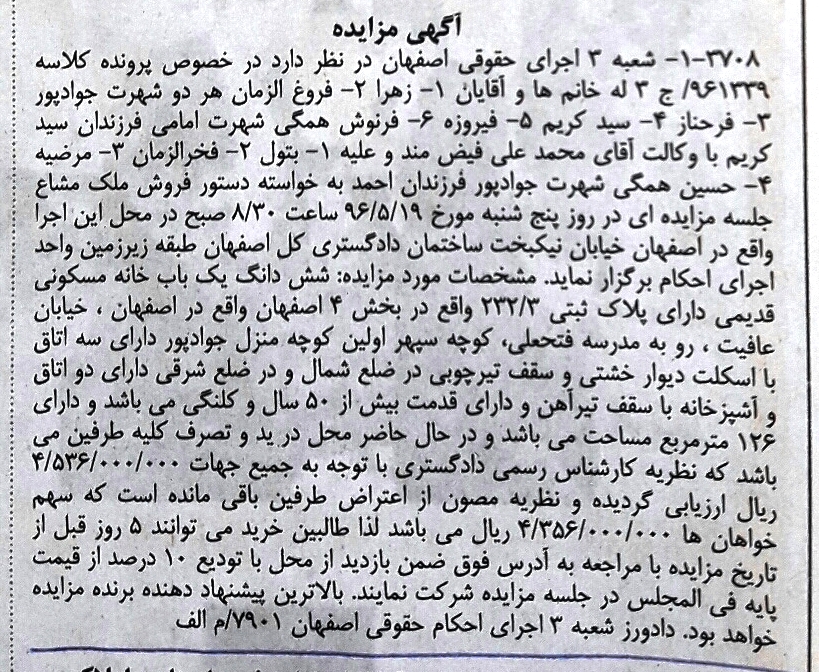 آگهی مزایده
۳۷۰۸-۱- شعبه ۳ اجرای حقوقی اصفهان در نظر دارد در خصوص پرونده کلاسه
۹۶۱۳۳۹/ ج ۳ له خانم ها و آقایان ۱- زهرا ۲- فروغ الزمان هر دو شهرت جوادپور
۳- فرحناز ۴- سید کریم ۵- فیروزه ۶- فرنوش همگی شهرت امامی فرزندان سید
کریم با وکالت آقای محمد علی فیض مند و علیه ۱- بتول ۲- فخرالزمان ۳- مرضیه
۴- حسین همگی شهرت جوادپور فرزندان احمد به خواسته دستور فروش ملک مشاع
جلسه مزایده ای در روز پنج شنبه مورخ ۹۶/۵/۱۹ ساعت ۸/۳۰ صبح در محل این اجرا
واقع در اصفهان خیابان نیکبخت ساختمان دادگستری کل اصفهان طبقه زیرزمین واحد
اجرای احکام برگزار نماید. مشخصات مورد مزایده: شش دانگ یک باب خانه مسکونی
قدیمی دارای پلاک ثبتی ۲۳۲/۳ واقع در بخش ۴ اصفهان واقع در اصفهان ، خیابان
عافیت ، رو به مدرسه فتحعلی، کوچه سپهر اولین کوچه منزل جوادپور دارای سه اتاق
با اسکلت دیوار خشتی و سقف تیرچوبی در ضلع شمال و در ضلع شرقی دارای دو اتاق
و آشپزخانه با سقف تیرآهن و دارای قدمت بیش از ۵۰ سال و کلنگی می باشد و دارای
۱۲۶ مترمربع مساحت می باشد و در حال حاضر محل در ید و تصرف کلیه طرفین می
باشد که نظریه کارشناس رسمی دادگستری با توجه به جمیع جهات ۴/۵۳۶/۰۰۰/۰۰۰
ریال ارزیابی گردیده و نظریه مصون از اعتراض طرفین باقی مانده است که سهم
خواهان ها ۴/۳۵۶/۰۰۰/۰۰۰ ریال می باشد لذا طالبین خرید می توانند ۵ روز قبل از
تاریخ مزایده با مراجعه به آدرس فوق ضمن بازدید از محل با تودیع ۱۰ درصد از قیمت
پایه فی المجلس در جلسه مزایده شرکت نمایند. بالاترین پیشنهاد دهنده برنده مزایده
خواهد بود. دادورز شعبه ۳ اجرای احکام حقوقی اصفهان ۷۹۰۱/م الف